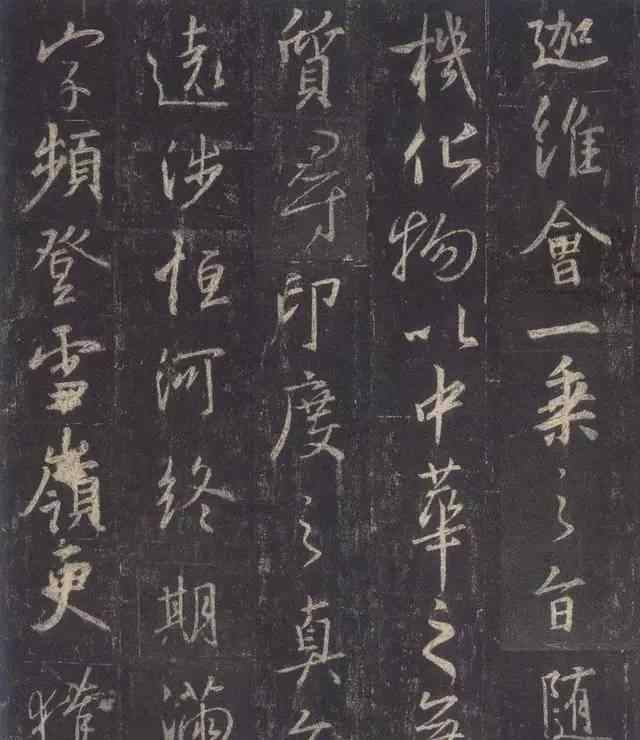 迦維會一乗之旨随
機化物以中華之無
質尋印度之真
遠涉恒河終期滿
字頻登雪嶺更獲